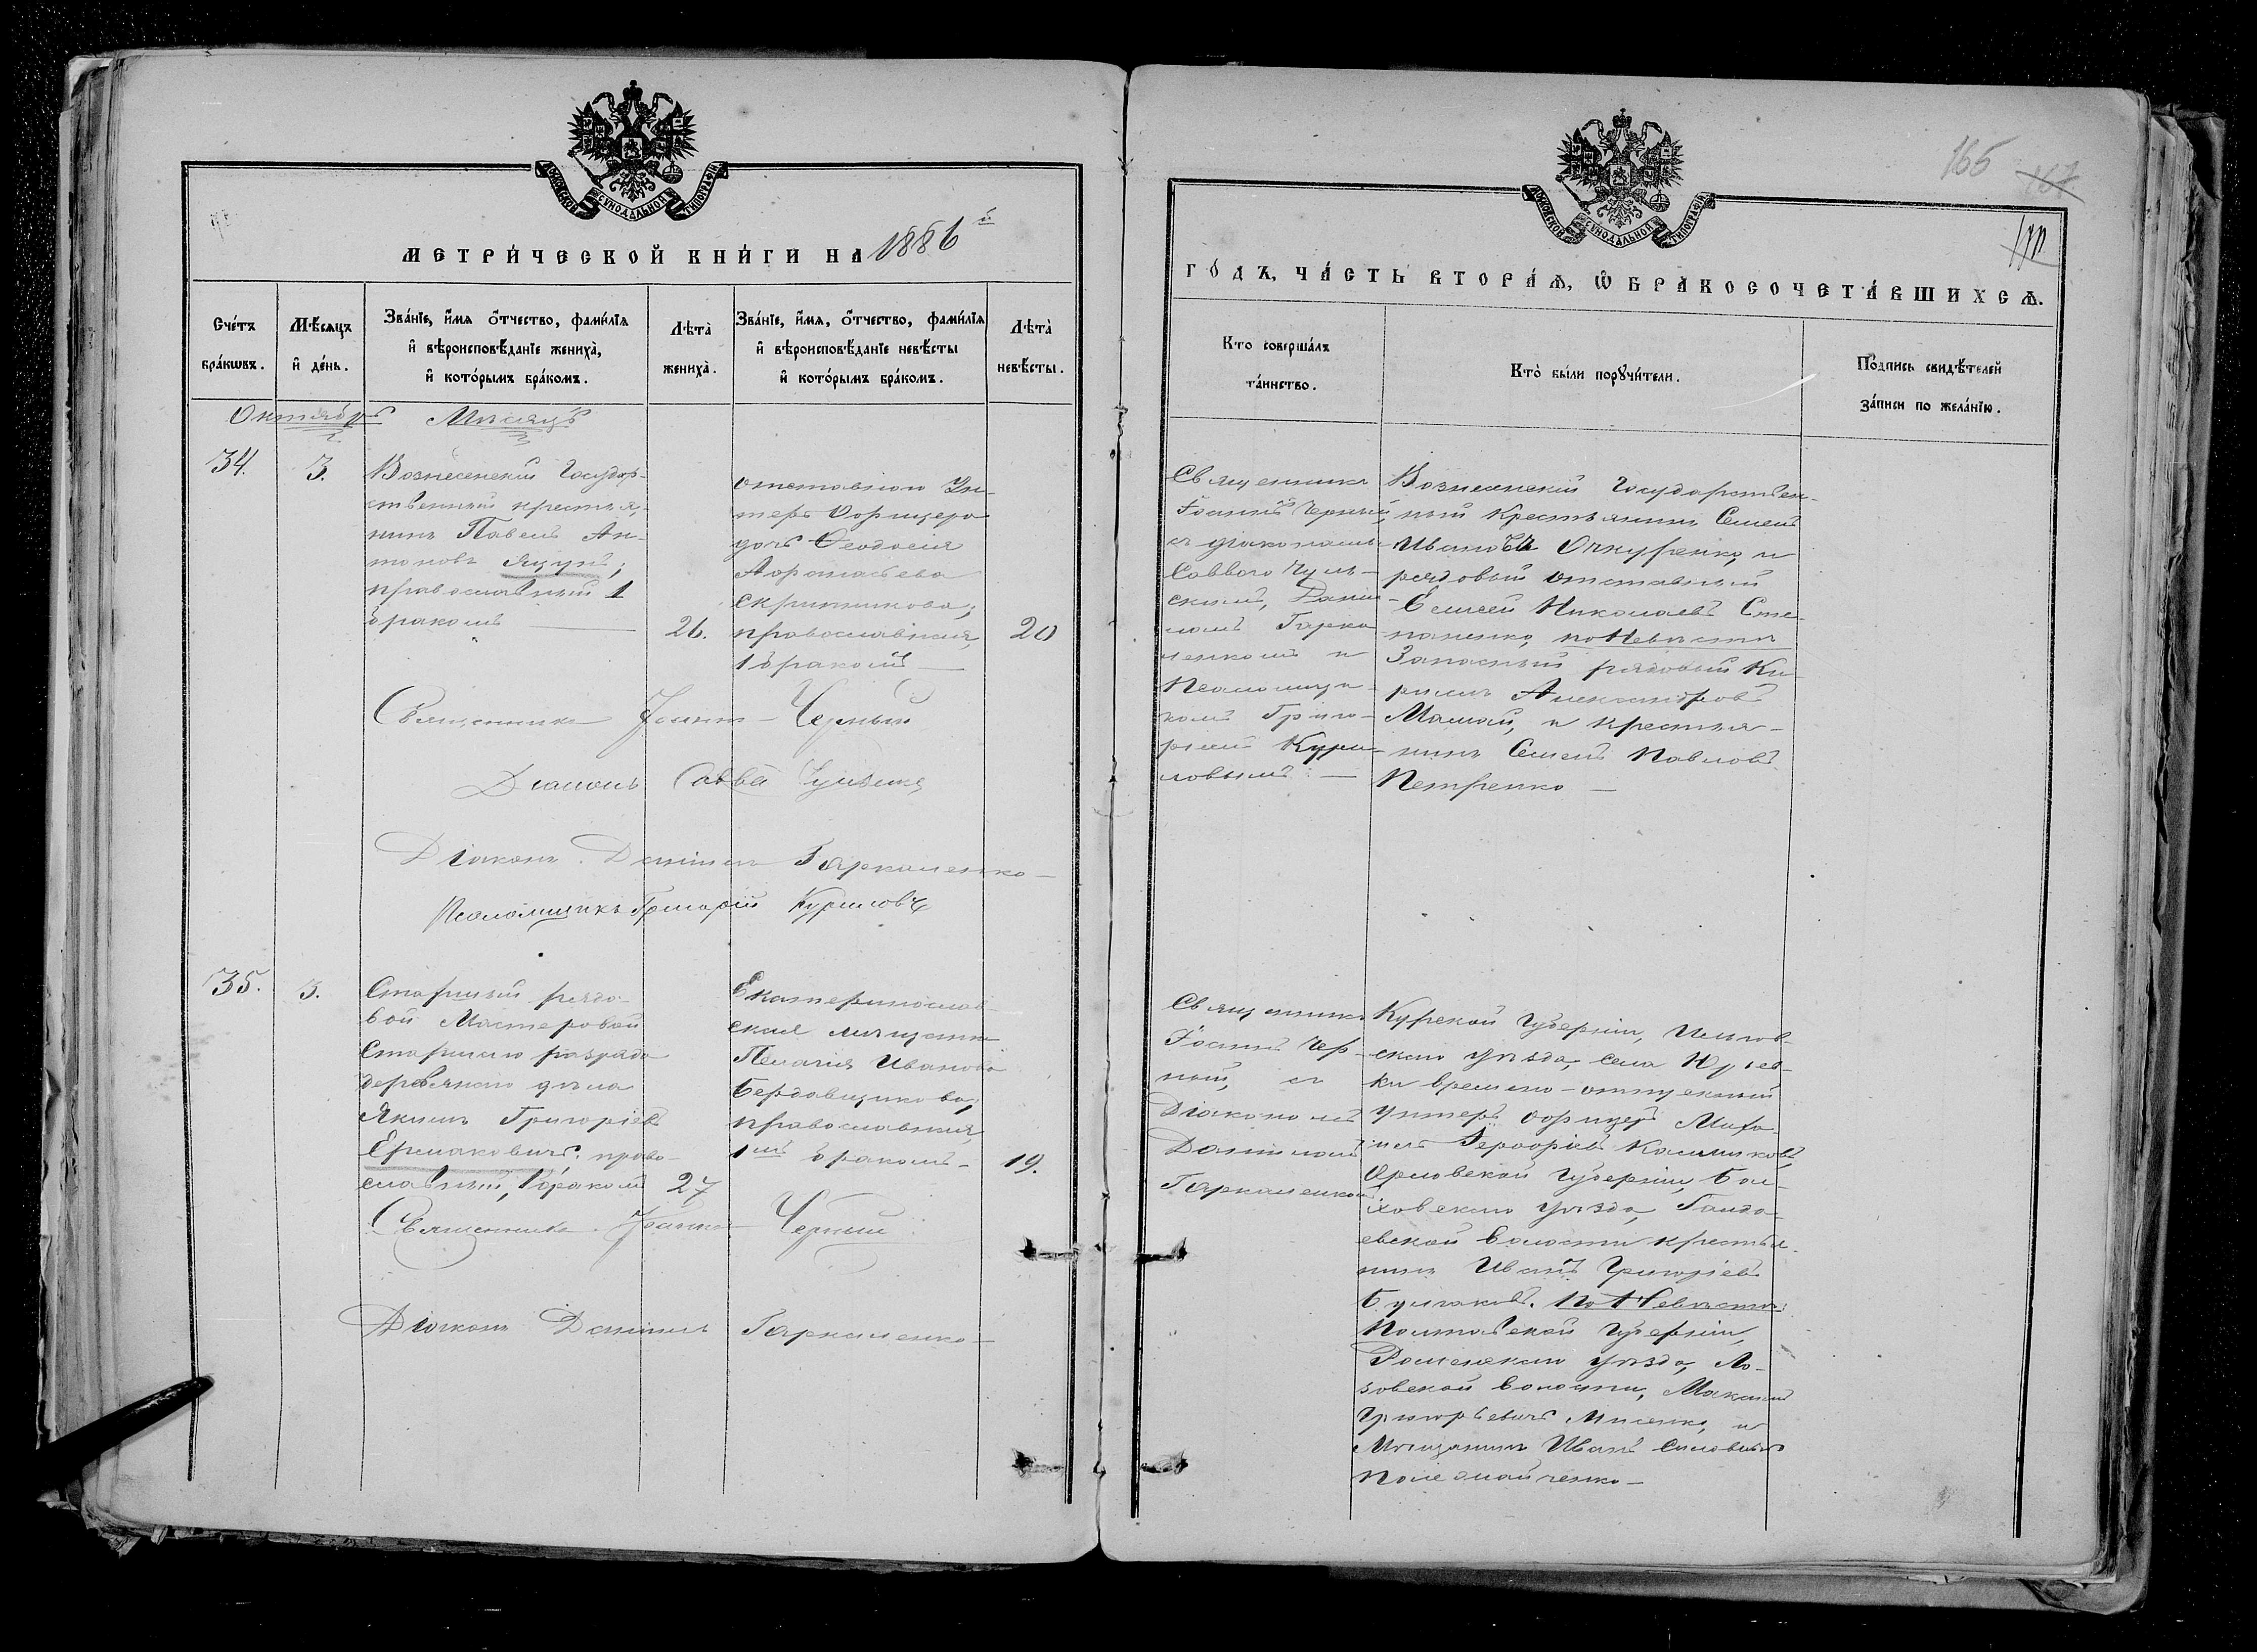 МОСКОВСКОЙ СѴНОДАЛЬНОЙ ТИПОГРАФІИ
МЕТРИ́ЧЕСКОЙ КНИ́ГИ НА 1886й
Сче́тъ бра́кωвъ.
Мѣ́сяцъ и҆ де́нь.
Зва́нїе, и҆́мя ѻ҆́тчество, фами́лїя
и҆ вѣроисповѣ́данїе жениха̀,
и҆ кото́рымъ бра́комъ.
Лѣта̀ жениха̀.
Зва́нїе, и҆́мя, ѻ҆́тчество, фами́лїя
и҆ вѣроисповѣ́данїе невѣ́сты
и҆ кото́рымъ бра́комъ.
Лѣта̀ невѣ́сты.
Октябрь Мѣсяцъ
34.
3.
Вознесенскій Государ-
ственный крестья-
нинъ Павелъ Ан-
тоновъ Яцунъ;
православный 1
бракомъ —
26.
отставнаго Ун-
теръ Офицера
дочь Ѳеодосія
Аѳанасьева
Скритникова;
православная,
1 бракомъ —
20
Священникъ Іоаннъ Черный
Діаконъ Савва
Діаконъ Даніилъ Гаркаленко
Псаломщикъ Григорій Куриловъ
35.
3.
Старшый рядо-
вой Мастеровой
Старшаго разряда
деревяннаго дѣла
Якимъ Григоріевъ
Ермаковичъ, право-
славный, 1 бракомъ
27
Екатеринослав-
ская мѣщанка
Пелагія Иванова
Бердовщикова,
православная,
1мъ бракомъ —
19.
Священникъ Іоаннъ Черный
Діаконъ Даніилъ Гаркаленко
165 167
МОСКОВСКОЙ СѴНОДАЛЬНОЙ ТИПОГРАФІИ
ГО́ДЪ, ЧА́СТЬ ВТОРА́Ѧ, Ѡ҆ БРАКОСОЧЕТА́ВШИХСѦ.
Кто̀ соверша́лъ
та́инство.
Кто̀ бы́ли порꙋчи́тели.
По́дпись свидѣ́телей
за́писи по жела́нїю.
Священникъ
Іоаннъ Черный,
съ діаконами
Саввою
Дані-
ломъ Гарка-
ленкомъ и
Псаломщи-
комъ Григо-
ріемъ Кури-
ловымъ. —
Вознесенскій Государствен-
ный Крестьянинъ Семенъ
Ивановъ Очкуренко, и
рядовый отставный
Елисей Николаевъ Сте-
паненко, по Невѣстѣ
Запасный рядовый Ки-
риллъ Александровъ
Мамай, и крестья-
нинъ Семенъ Павловъ
Петренко —
Священникъ
Іоаннъ Чер-
ный, съ
Діакономъ
Даніиломъ
Гаркаленкомъ
Курской Губерніи, Льгов-
скаго уѣзда, села
временно-отпускный
унтеръ офицеръ Миха-
илъ Калашниковъ,
Орловской Губерніи, Бол-
ховскаго уѣзда,
волости крестья-
нинъ Иванъ Григоріевъ
Булгаковъ. По Невѣстѣ:
Полтавской Губерніи,
Роменскаго уѣзда, Ло-
зовской волости, Максимъ
Григорьевичъ Мисенко, и
Мѣщанинъ Иванъ